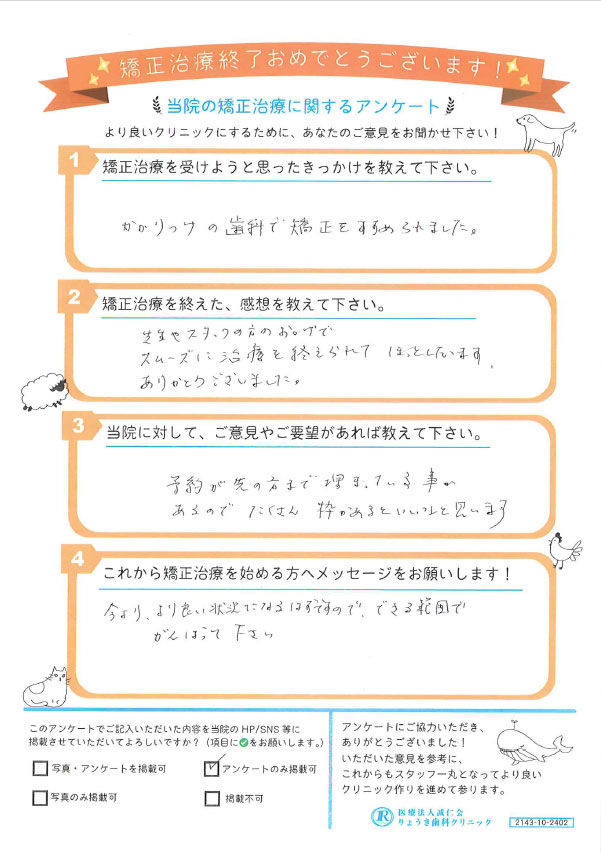 矯正治療終了おめでとうございます！
当院の矯正治療に関するアンケート
より良いクリニックにするために、あなたのご意見をお聞かせ下さい！
1 矯正治療を受けようと思ったきっかけを教えて下さい。
かかりつけの歯科で矯正をすすめられました。
2 矯正治療を終えた、感想を教えて下さい。
先生やスタッフの方のおかげで
スムーズに治療を終えられて ほっとしています。
ありがとうございました。
3 当院に対して、ご意見やご要望があれば教えて下さい。
予約が先の方まで埋まっている事が
あるので たくさん 枠があるといいなと思います
4 これから矯正治療を始める方へメッセージをお願いします！
今より、より良い状況になるはずですので、できる範囲で
がんばって下さい
このアンケートでご記入いただいた内容を当院の HP/SNS 等に
掲載させていただいてよろしいですか？（項目に✓をお願いします。）
写真・アンケートを掲載可 アンケートのみ掲載可
写真のみ掲載可 掲載不可
アンケートにご協力いただき、
ありがとうございました！
いただいた意見を参考に、
これからもスタッフ一丸となってより良い
クリニック作りを進めて参ります。
医療法人誠仁会
りょうき歯科クリニック
2143-10-2402